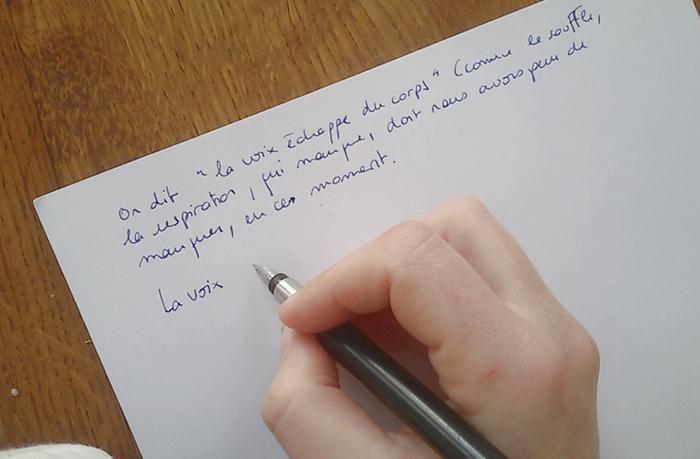 On dit "la voix échappe du corps" (comme le souffle,
la respiration, qui manque, dont nous avons peur de
manquer, en ces moment.
La voix